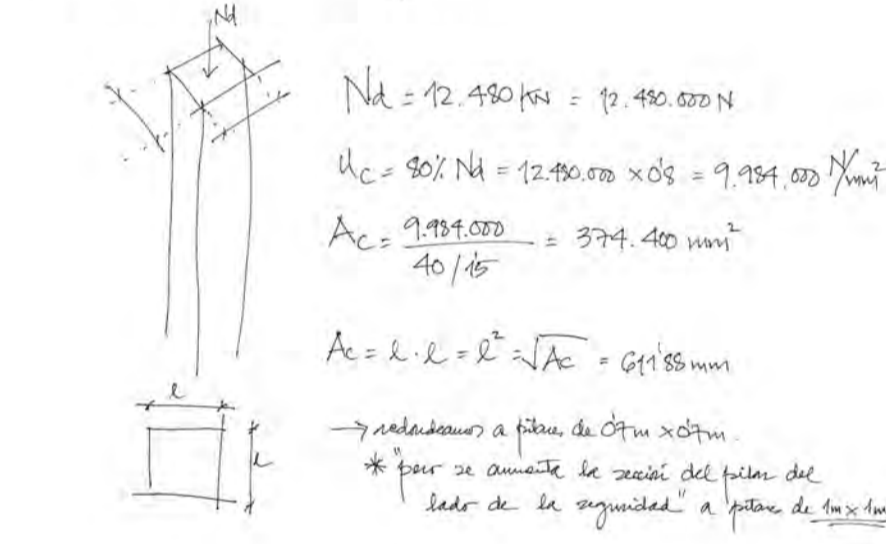 Nd
Nd = 12.480 kN = 12.480.000 N
Uc = 80% Nd = 12.480.000 x 0'8 = 9.984.000 N/mm²
Ac = 9.984.000 / 40/1'5 = 374.400 mm²
Ac = l · l = l² = √Ac = 611'88 mm
l
l
→ redondeamos a pilares de 0'7m x 0'7m.
* "pero se aumenta la sección del pilar del
lado de la seguridad" a pilares de 1m x 1m